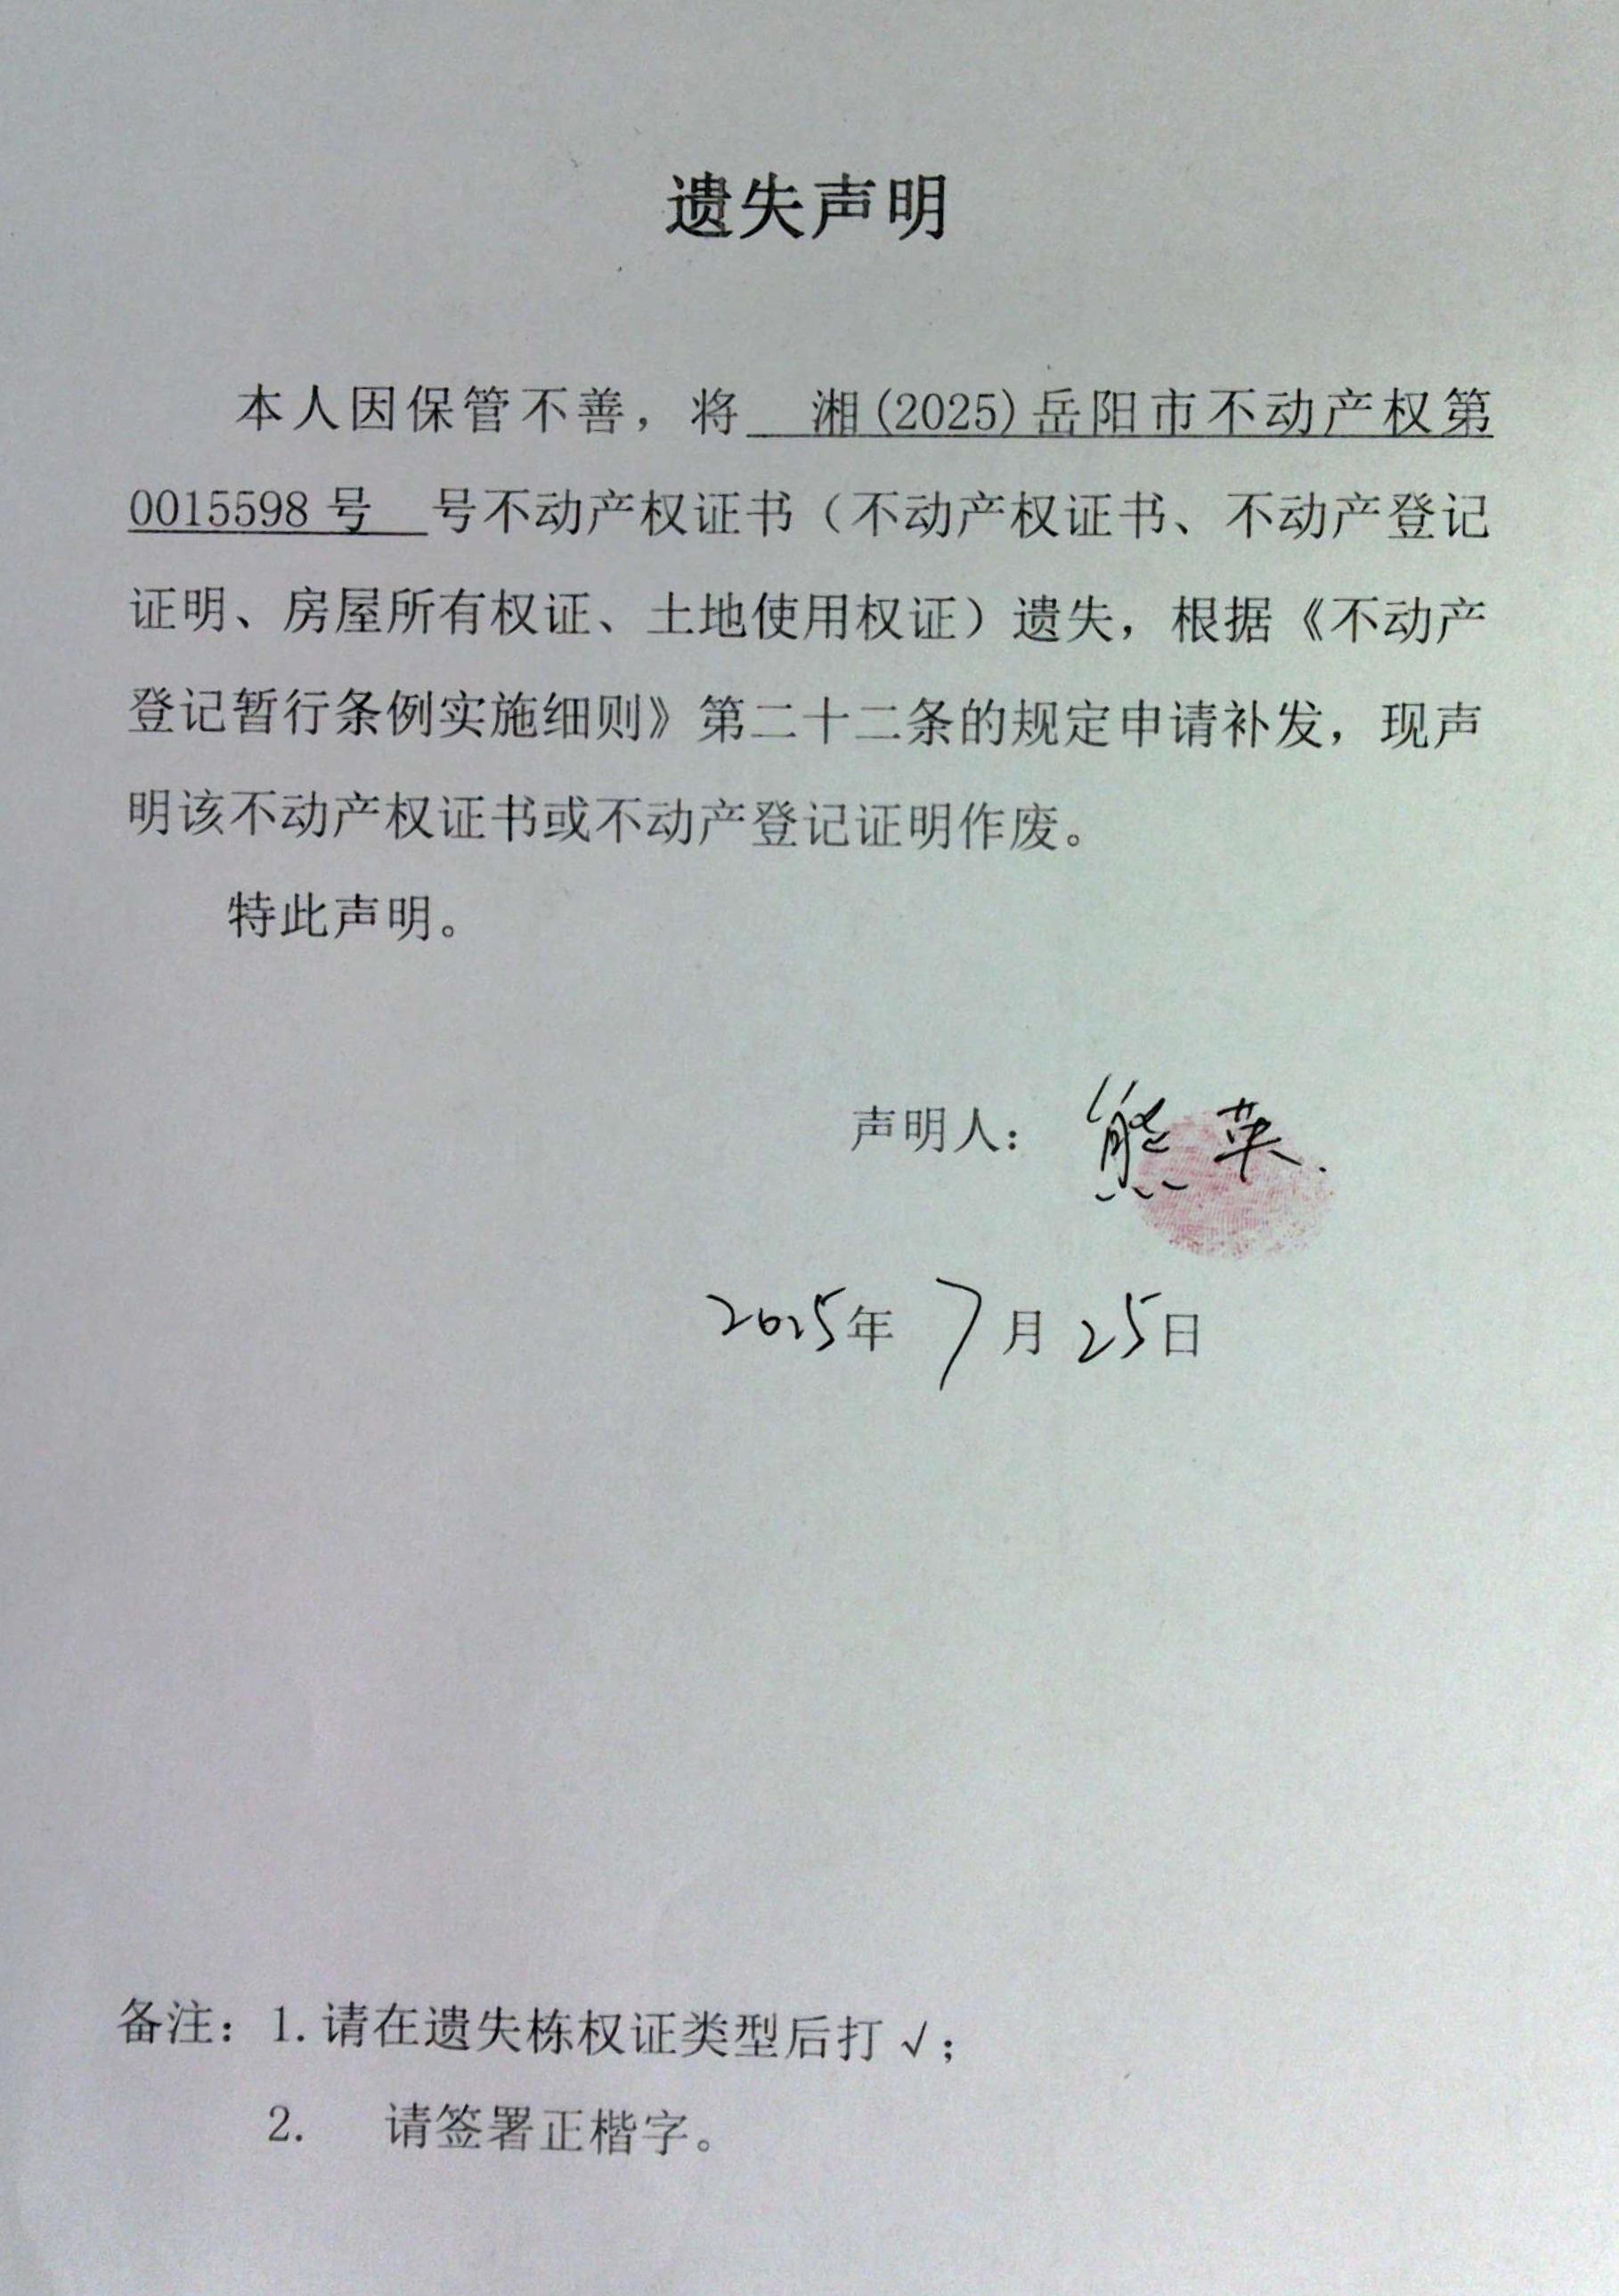 遗失声明
本人因保管不善，将 湘(2025)岳阳市不动产权第
0015598号 号不动产权证书（不动产权证书、不动产登记
证明、房屋所有权证、土地使用权证）遗失，根据《不动产
登记暂行条例实施细则》第二十二条的规定申请补发，现声
明该不动产权证书或不动产登记证明作废。
特此声明。
声明人：熊英.
2025年7月25日
备注：1.请在遗失栋权证类型后打√；
2. 请签署正楷字。